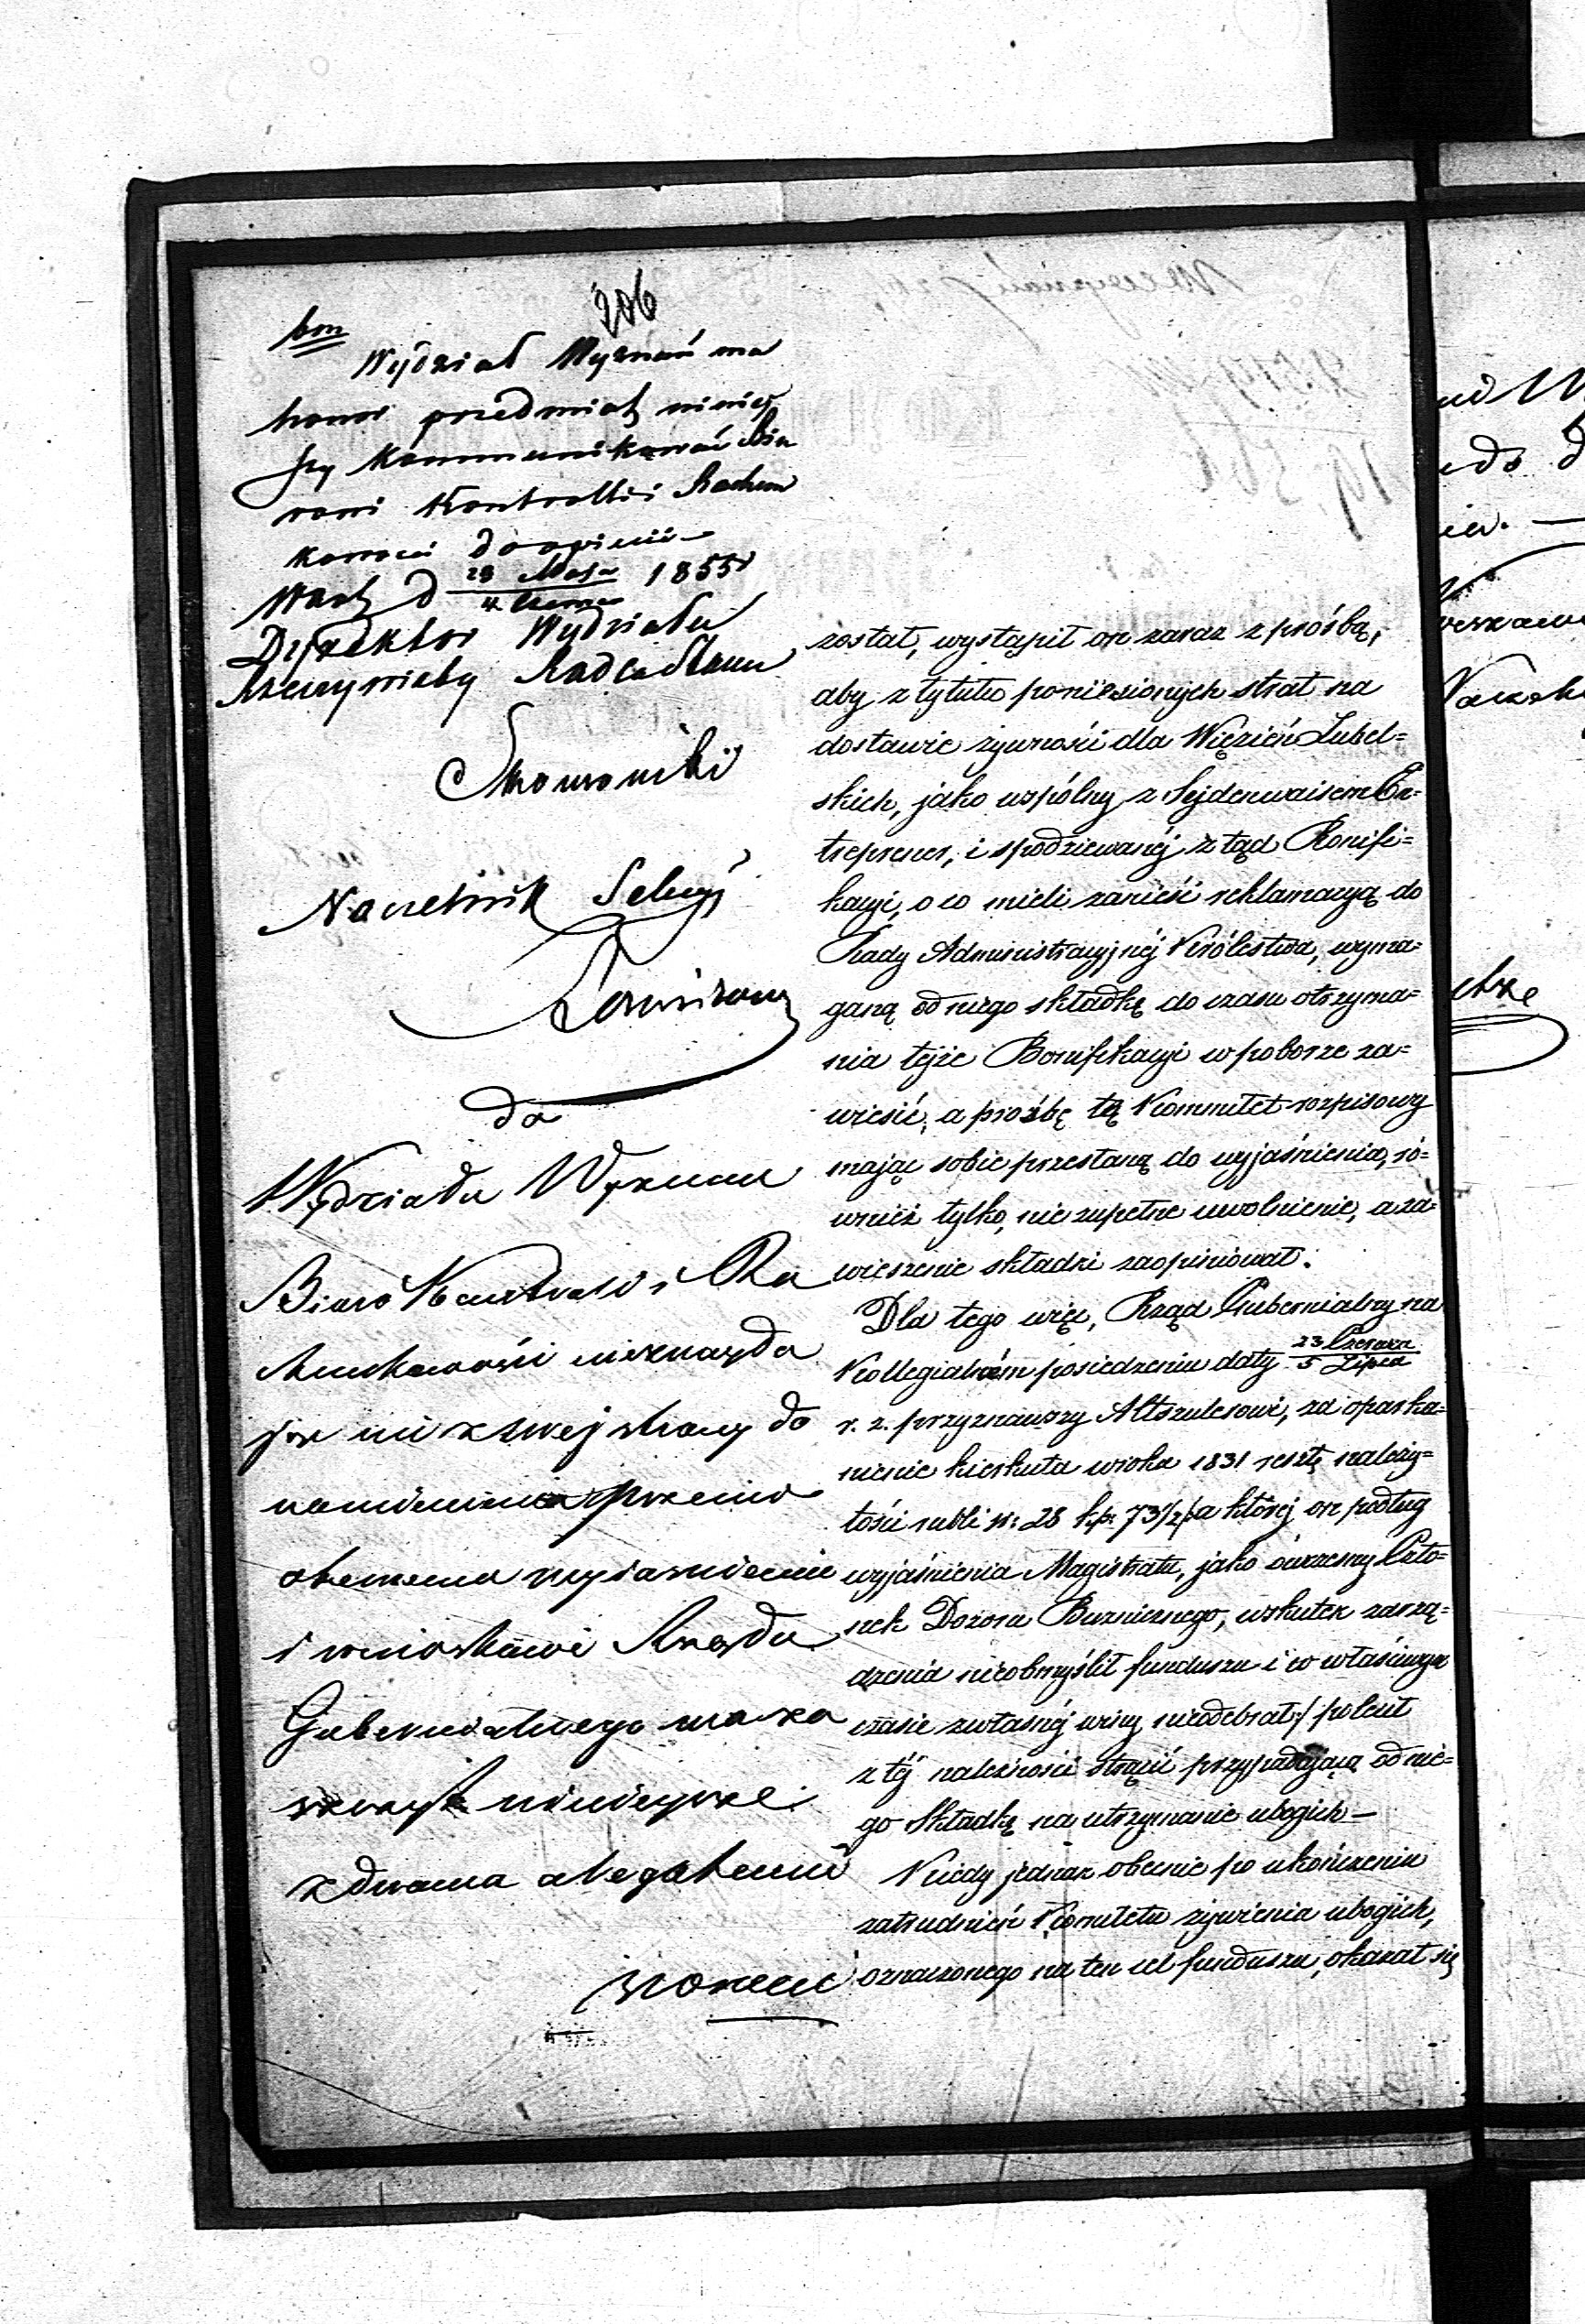 206
Wydział Wyznań ma
honor przedmiot niniej
szy kommunikować Biu
rowi Kontrolli i Rachun
kowości do opinii
Warsz. d 23 Maja / 4 Czerwca 1855
Dyrektor Wydziału
Rzeczywisty Radca Stanu
Naczelnik Sekcyi
do
Wydziału Wyznań
Biuro Kontroli i Ra
chunkowości nieznajdu
jąc nic z swej strony do
nadmienienia przeciw
obecnemu wyjaśnieniu
i wnioskowi Rządu
Gubernialnego ma za
szczyt niniejsze
z dwoma allegatami
zwrócić
został, wystąpił on zaraz z prośbą,
aby z tytułu poniesionych strat na
dostawie żywności dla Więzień Lubel=
skich, jako wspólny z Sejdenwaisem En=
treprener, i spodziewanéj z tąd Bonifi=
kacyi, o co mieli zanieść reklamacyą do
Rady Administracyjnéj Królestwa, wyma=
ganą od niego składkę do czasu otrzyma=
nia tejże Bonifikacyi w poborze za=
wiesić, a prośbę tę Kommitet rozpisowy
mając sobie przesłaną do wyjaśnienia, ró=
wnież tylko, nie zupełne uwolnienie, a za=
wieszenie składki zaopiniował.
Dla tego więc, Rząd Gubernialny na
Kollegialném posiedzeniu daty 23 Czerwca / 5 Lipca
r. z. przyznawszy Altszulerowi, za oparka=
nienie kierkuta wroku 1831 resztę należy=
tości rubli sr: 28 kp: 73 1/2 /a której on podług
wyjaśnienia Magistratu, jako ówczesny Czło=
nek Dozoru Bożnicznego, wskutek zarzą=
dzenia nieobmyślił funduszu i w właściwym
czasie zwłasnéj winy nieodebrał/ polecił
z téj należności strącić przypadającą od nie=
go Składkę na utrzymanie ubogich—
Kiedy jednak obecnie po ukończeniu
zatrudnień Komitetu żywienia ubogich,
oznaczonego na ten cel funduszu, okazał się